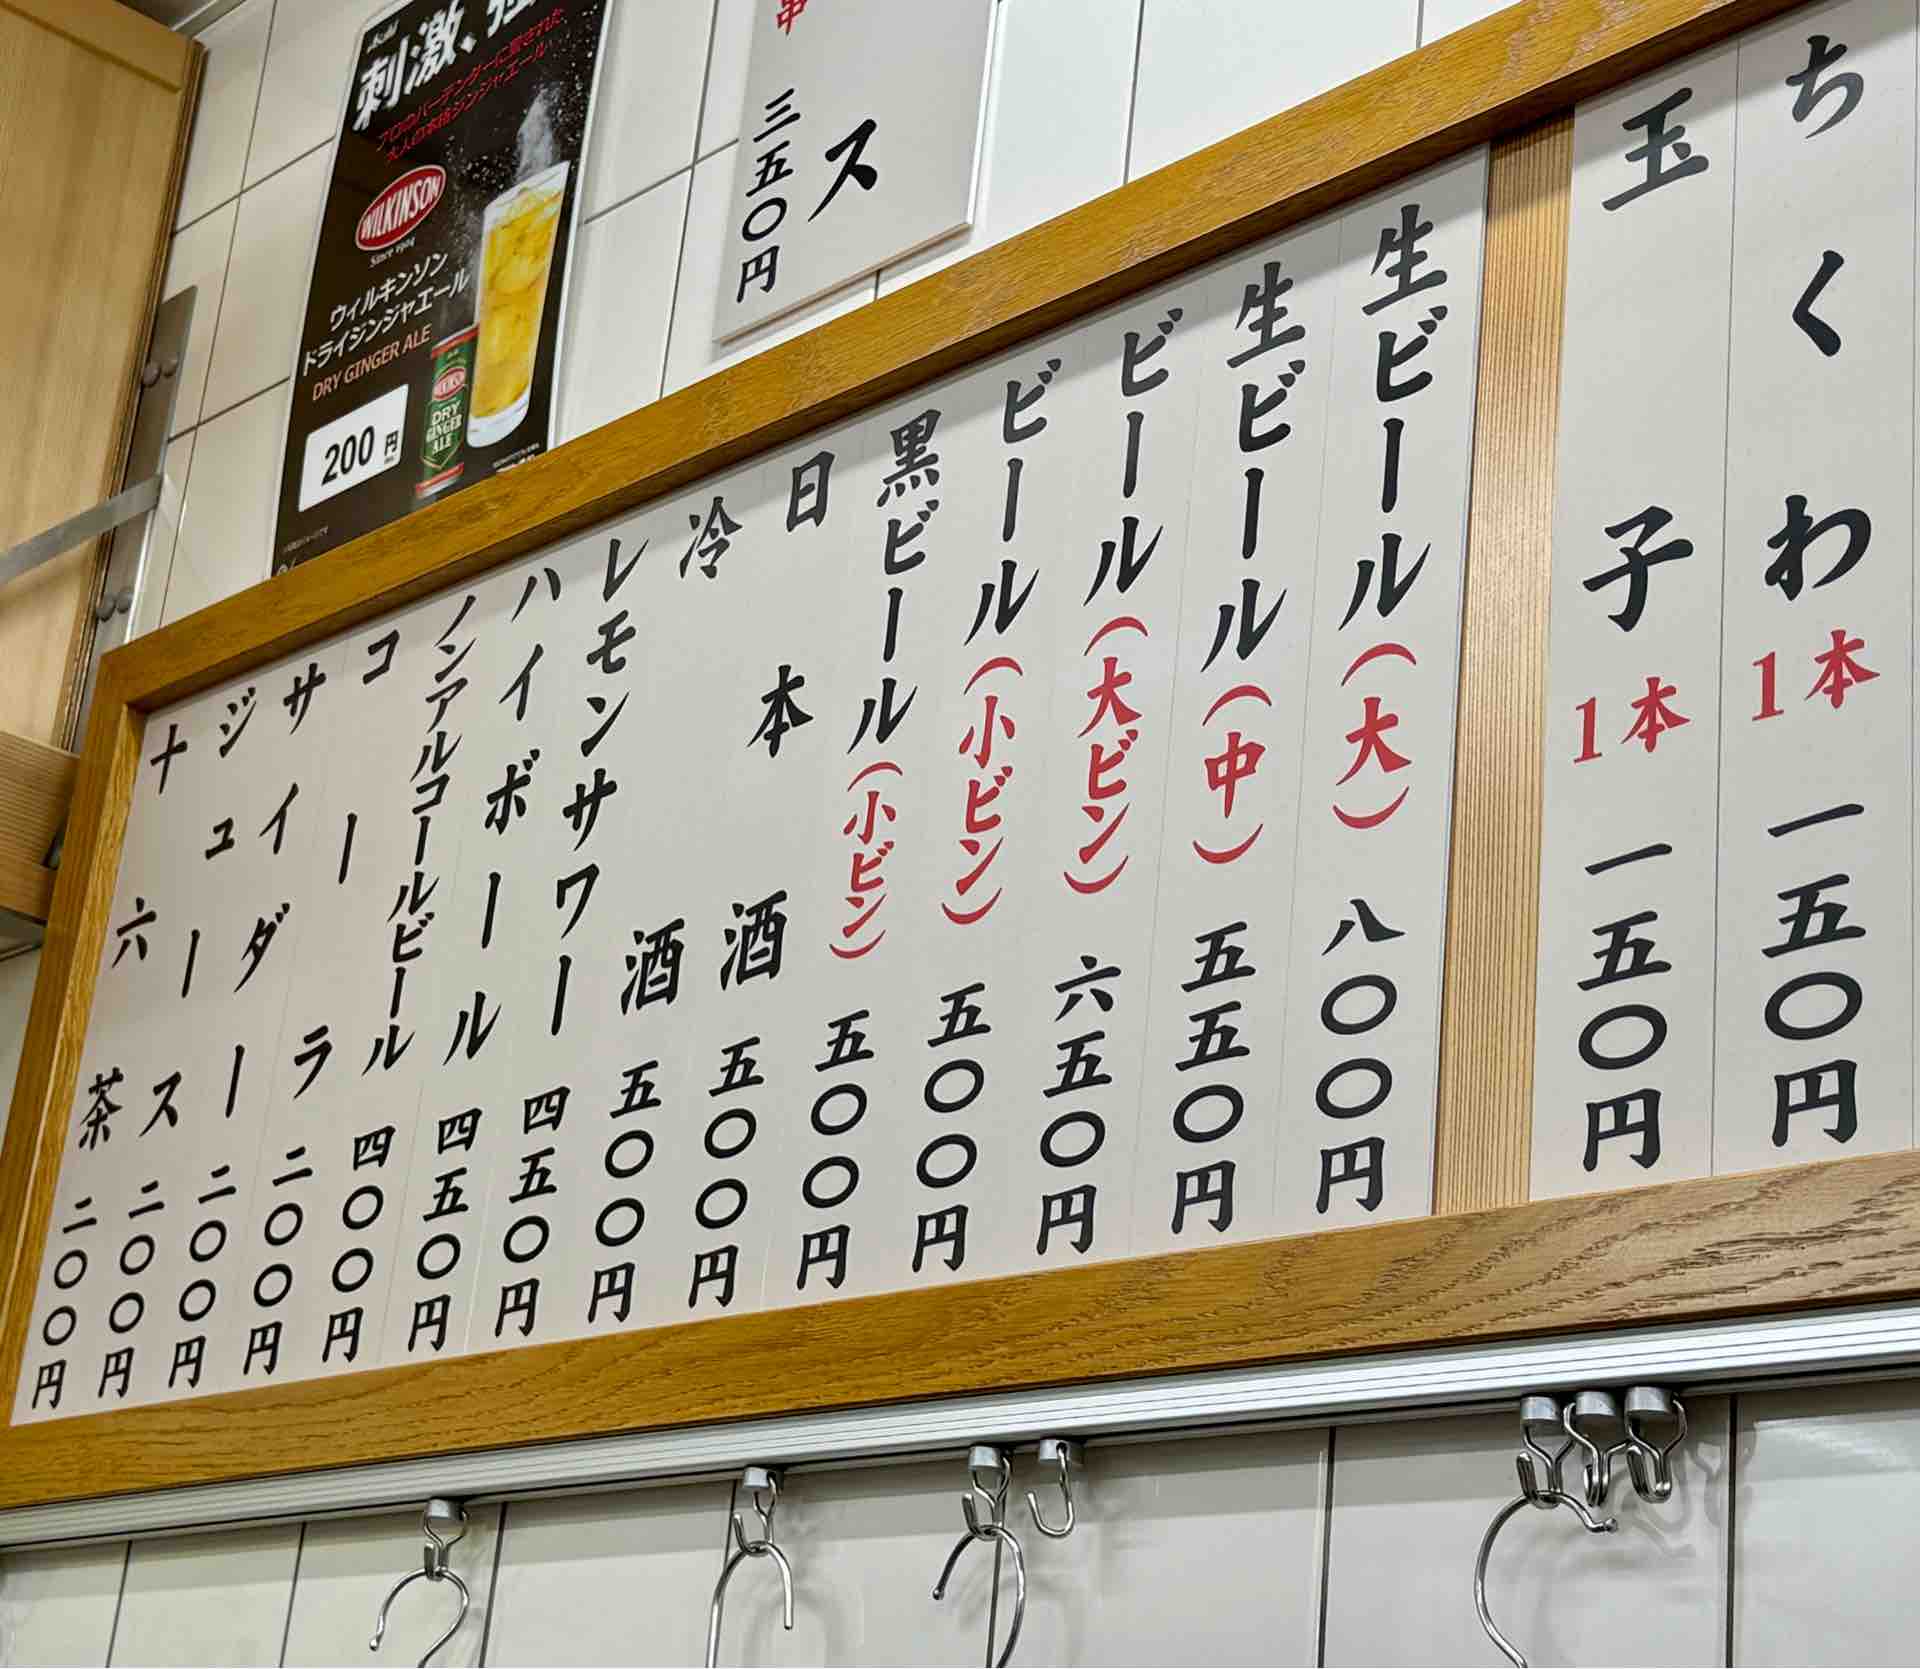 Asahi
刺激、強
プロのバーテンダーに愛された
大人の本格ジンジャエール
WILKINSON
Since 1904
ウィルキンソン
ドライジンジャエール
DRY GINGER ALE
200円
DRY
GINGER
ALE
串
ス
三五〇円
ちくわ 1本 一五〇円
玉子 1本 一五〇円
生ビール(大) 八〇〇円
生ビール(中) 五五〇円
ビール(大ビン) 六五〇円
ビール(小ビン) 五〇〇円
黒ビール(小ビン) 五〇〇円
日本酒 五〇〇円
冷酒 五〇〇円
レモンサワー 四五〇円
ハイボール 四五〇円
ノンアルコールビール 四〇〇円
コーラ 二〇〇円
サイダー 二〇〇円
ジュース 二〇〇円
十六茶 二〇〇円